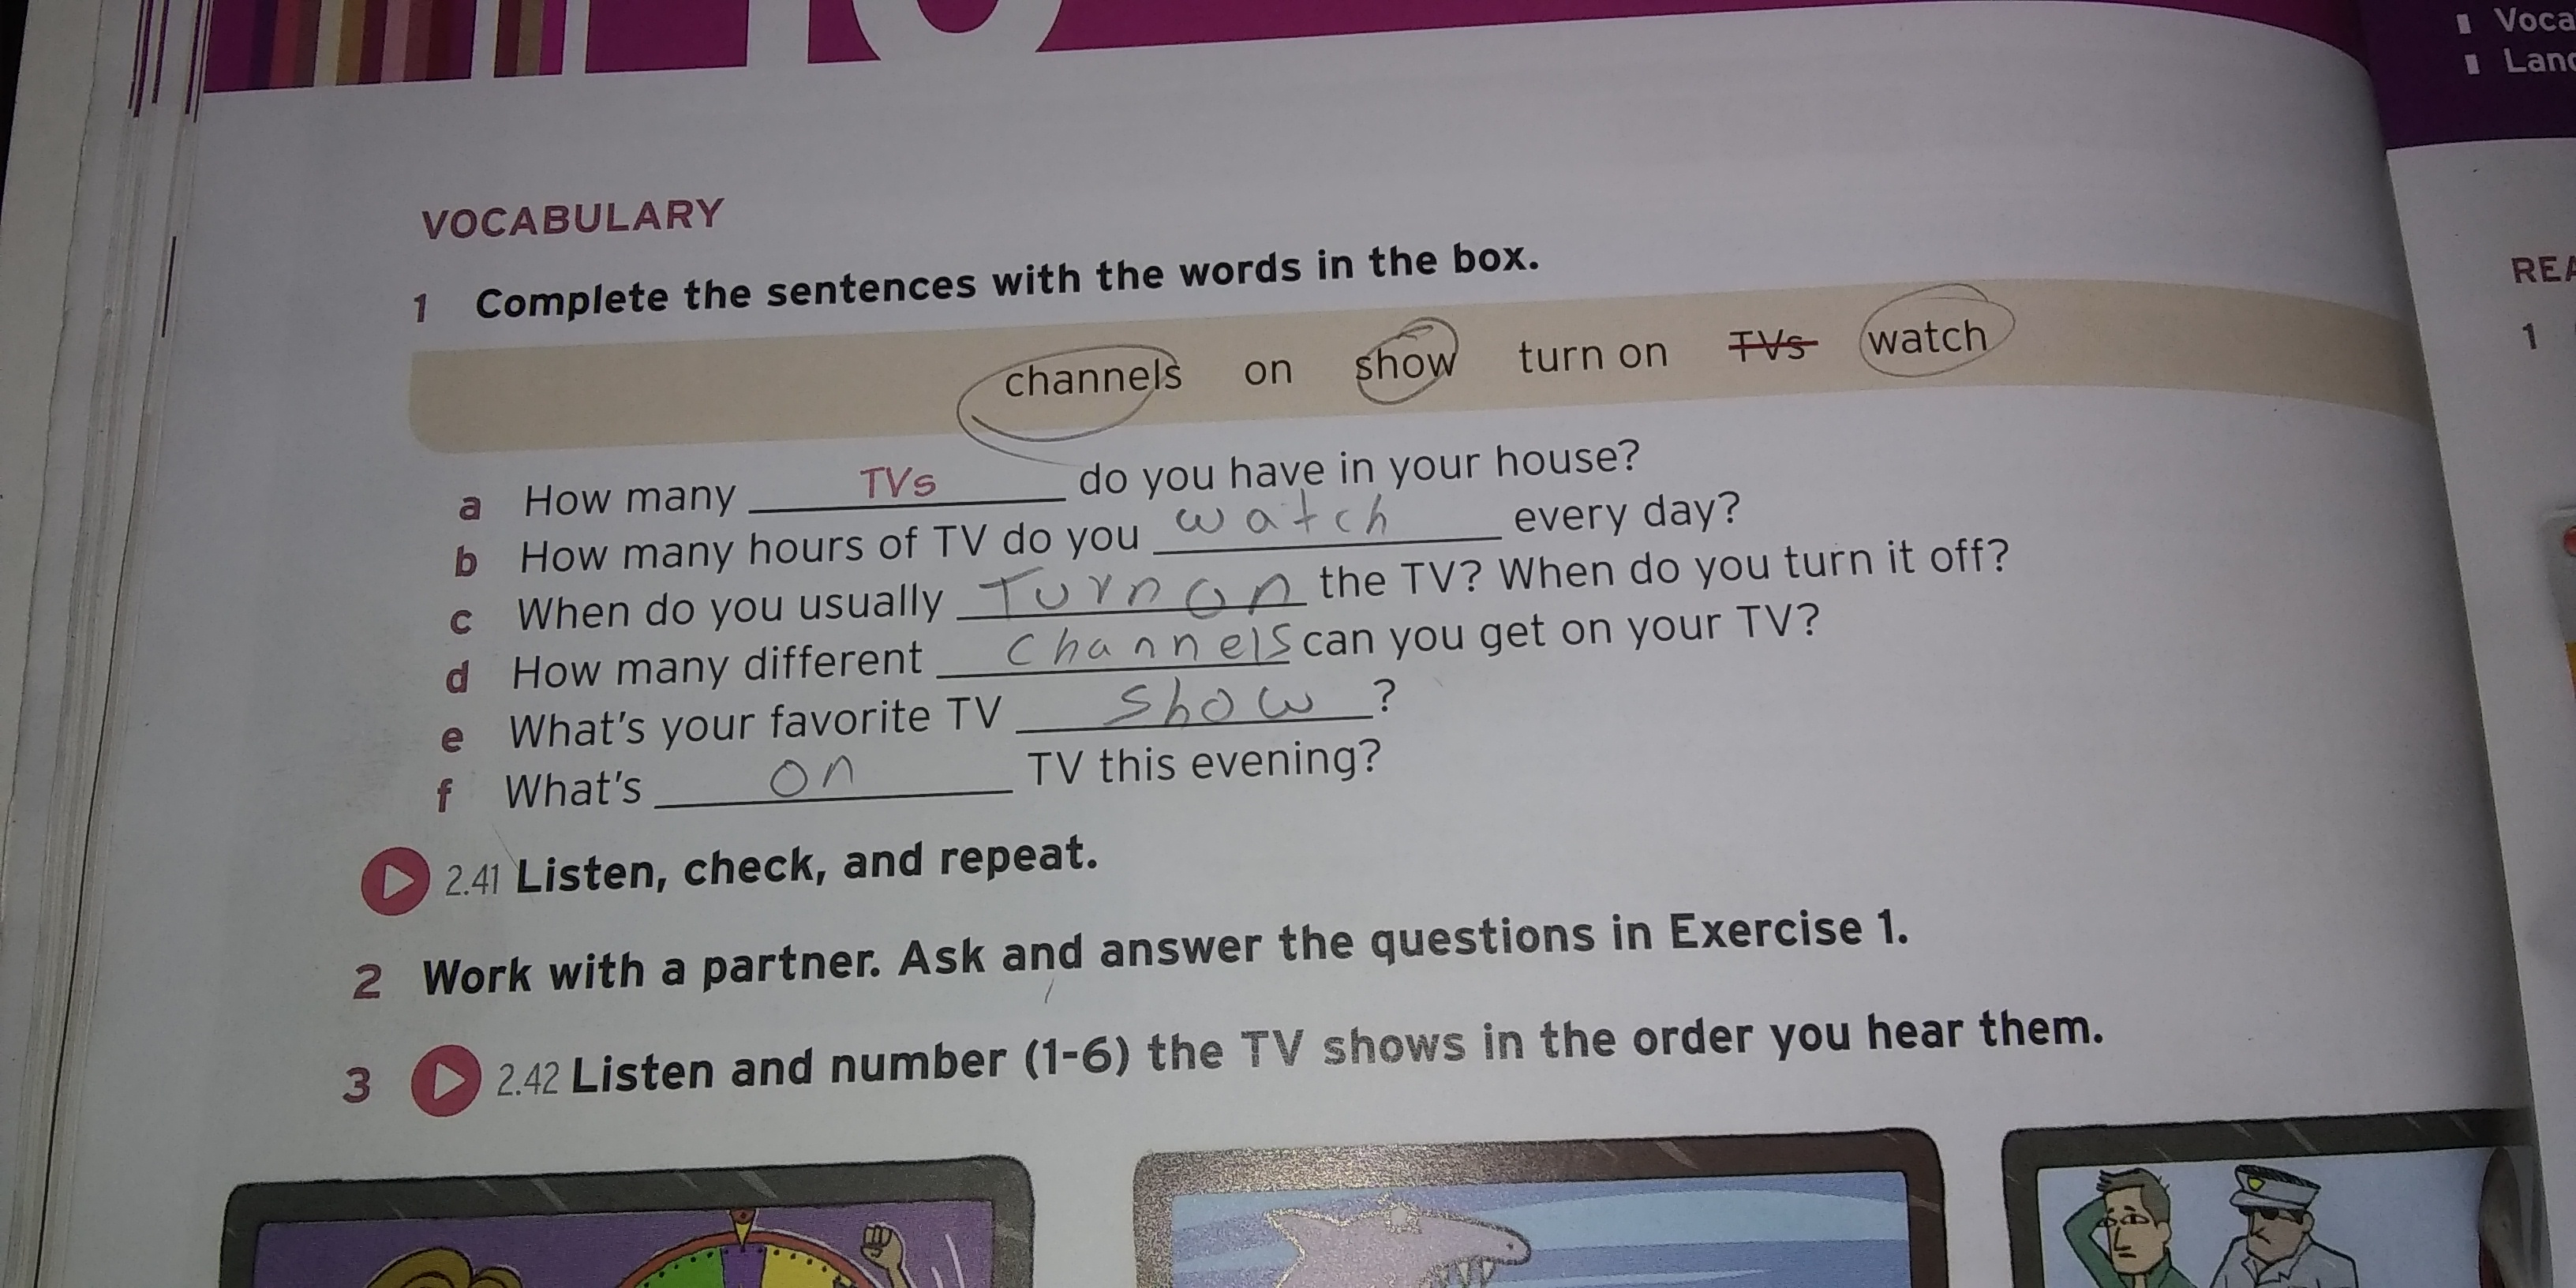 Voca
Lang
VOCABULARY
1 Complete the sentences with the words in the box.
channels on show turn on TVs watch
a How many TVs do you have in your house?
b How many hours of TV do you watch every day?
c When do you usually Turn on the TV? When do you turn it off?
d How many different channels can you get on your TV?
e What's your favorite TV show ?
f What's on TV this evening?
2.41 Listen, check, and repeat.
2 Work with a partner. Ask and answer the questions in Exercise 1.
3 2.42 Listen and number (1-6) the TV shows in the order you hear them.
REA
1